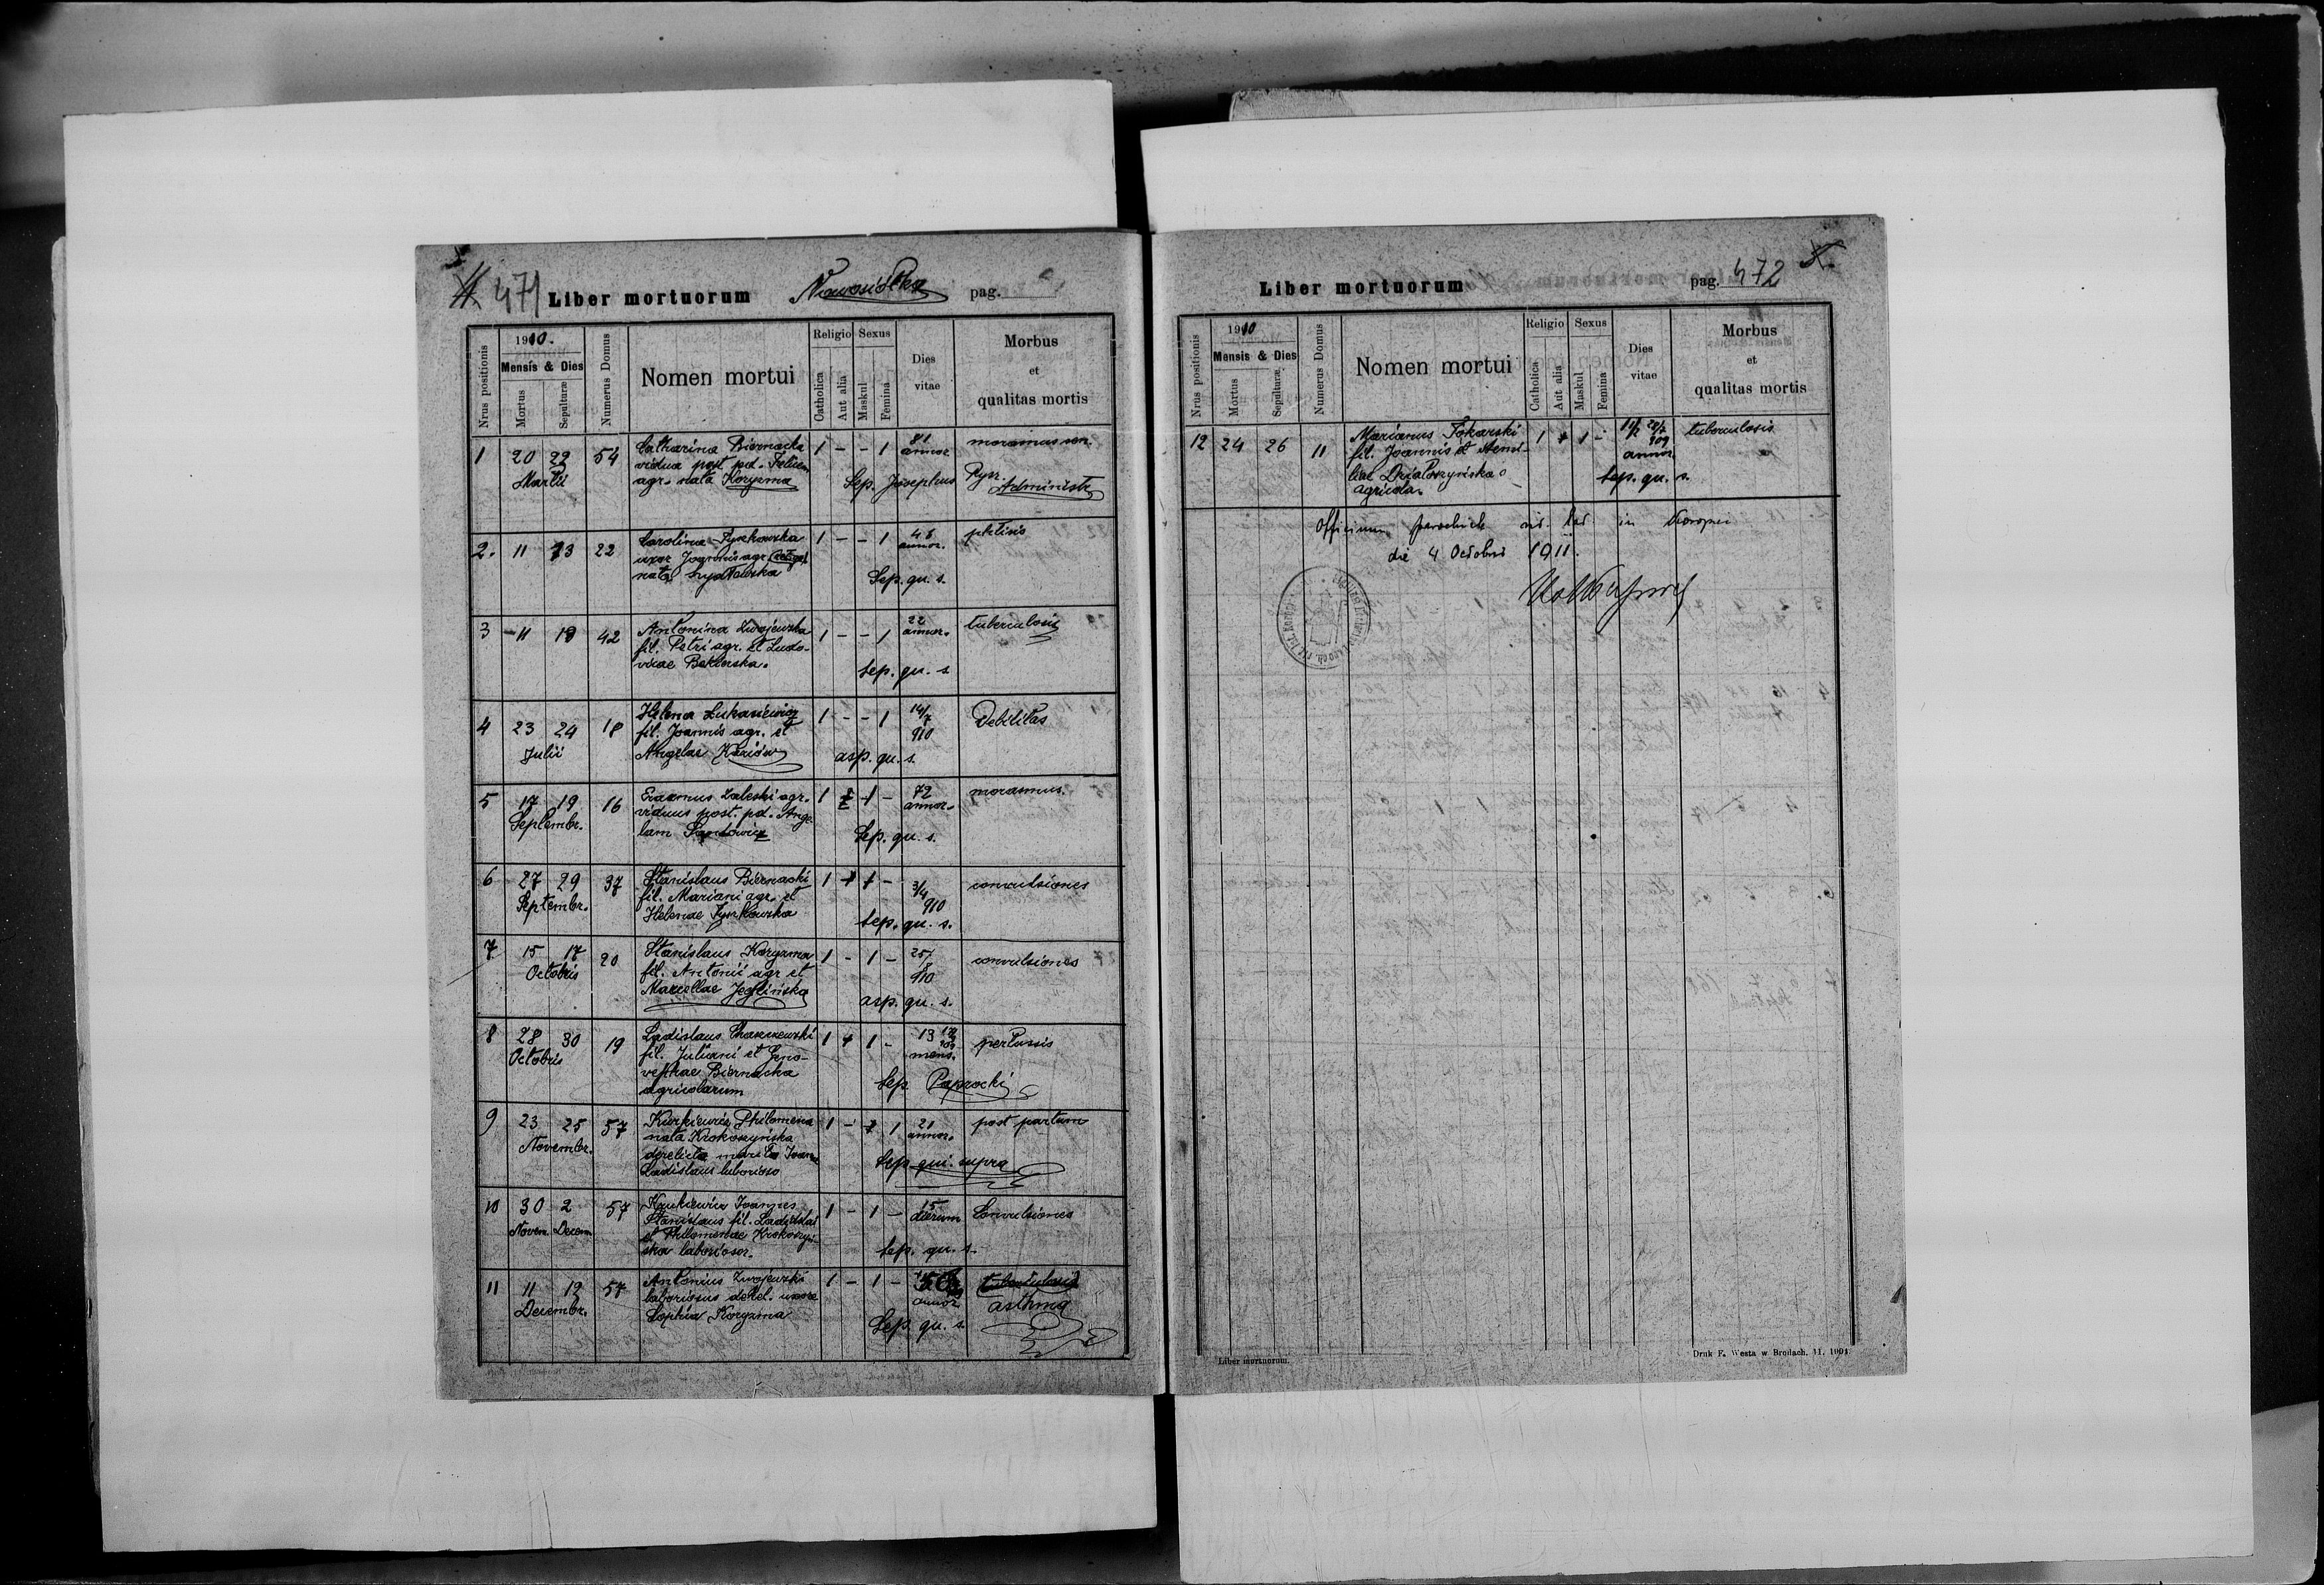 471 Liber mortuorum Nowosiółka pag.
Nrus positionis
1910.
Mensis & Dies
Mortus
Sepulturæ
Numerus Domus
Nomen mortui
Religio
Catholica
Aut alia
Sexus
Maskul
Femina
Dies
vitae
Morbus
et
qualitas mortis
1 20 22 Martii 54 Catharina Biernacka 1 - - 1 81 annor. marasmus sen.
vidua post pd. Felicem
agr. nata Koryzma Sep. Josephus Rysz. Administr.
2. 11 13 22 Carolina Tyszkowska 1 - - 1 annor. phtisis
uxor Joannis agr.
nata Sep. qu. s.
3 11 42 Antonina Zwojewska 1 - - 1 22 annor. tuberculosis
fil. Petri agr. et Ludo-
vicae Sep. qu. s
4 23 24 Julii 18 Helena Łukasiewicz 1 - - 1 14/7 910 Debilitas
fil. Joannis agr. et
Angelae asp. qu. s.
5 17 19 Septembr. 16 Erasmus Zaleski agr. 1 1 - 72 annor. marasmus.
viduus post. pd. Ange
lam Sep. qu. s.
6 27 29 Septembr. 37 Stanislaus Biernacki 1 - 3/4 910 convulsiones
fil. Mariani agr. et
Helenae Tyszkowska Sep. qu. s.
7 15 17 Octobris 20 Stanislaus Koryzma 1 - 1 - 25/8 910 convulsiones
fil. Antonii agr et
Marcellae Jeglińska asp. qu. s.
8 28 30 Octobris 19 Ladislaus 1 1 - 13 mens. pertussis
fil. Juliani et Geno-
vephae Biernacka
agricolarum Sep Paprocki
9 23 25 Novembr. 57 Philomena 1 - 1 21 annor. post partum
nata Krokoszyńska
derelicto marito
Ladislaus laborioso Sep. qui supra
10 30 2 Novem. Decem 57 Joannes 1 - 1 - 15 dierum Convulsiones
Stanislaus fil. Ladislai
et Philomenae Krokoszyń-
ska laborioser. Sep. qu. s.
11 11 13 Decembr. 57 Antonius Zwojewski 1 - 1 - annor tuberculosis
laboriosus derel. uxore asthma
Sophia Koryzma Sep. qu. s.
Liber mortuorum pag. 472
Nrus positionis
1910
Mensis & Dies
Mortus
Sepulturæ
Numerus Domus
Nomen mortui
Religio
Catholica
Aut alia
Sexus
Maskul
Femina
Dies
vitae
Morbus
et
qualitas mortis
12 24 26 11 Marianus Tokarski 1 1 - annor. tuberculosis
fil. Joannis et Aemi-
liae Działoszyńska
agricola. Sep. qu. s.
Officium parochiale rit. lat. in Koropiec
die 4 Octobris 1911.
Liber mortuorum.
Druk F. Westa w Brodach.